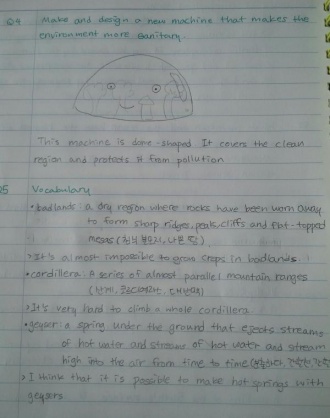 Q4 Make and design a new machine that makes the
environment more sanitary.
This machine is dome-shaped. It covers the clean
region and protects it from pollution
Q5 Vocabulary
• badlands : a dry region where rocks have been worn away
to form sharp ridges, peaks, cliffs and flat-topped
mesas
> It's almost impossible to grow crops in badlands.
• cordillera : A series of almost parallel mountain ranges
> It's very hard to climb a whole cordillera.
• geyser : a spring under the ground that ejects streams
of hot water and streams of hot water and stream
high into the air from time to time
> I think that it is possible to make hot springs with
geysers